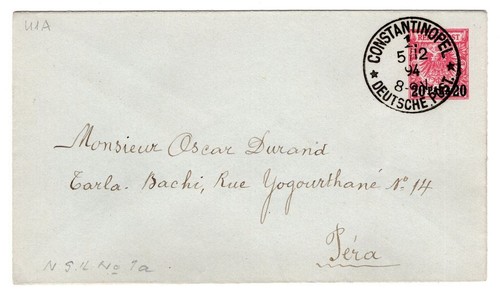 U1A
CONSTANTINOPEL
1
5 12
94
8-9 N
* DEUTSCHE POST. *
REICHSPOST
20 PARA 20
Monsieur Oscar Durand
Tarla-Bachi, Rue Yogourthané No 14
Péra
N.S.K No 1a.